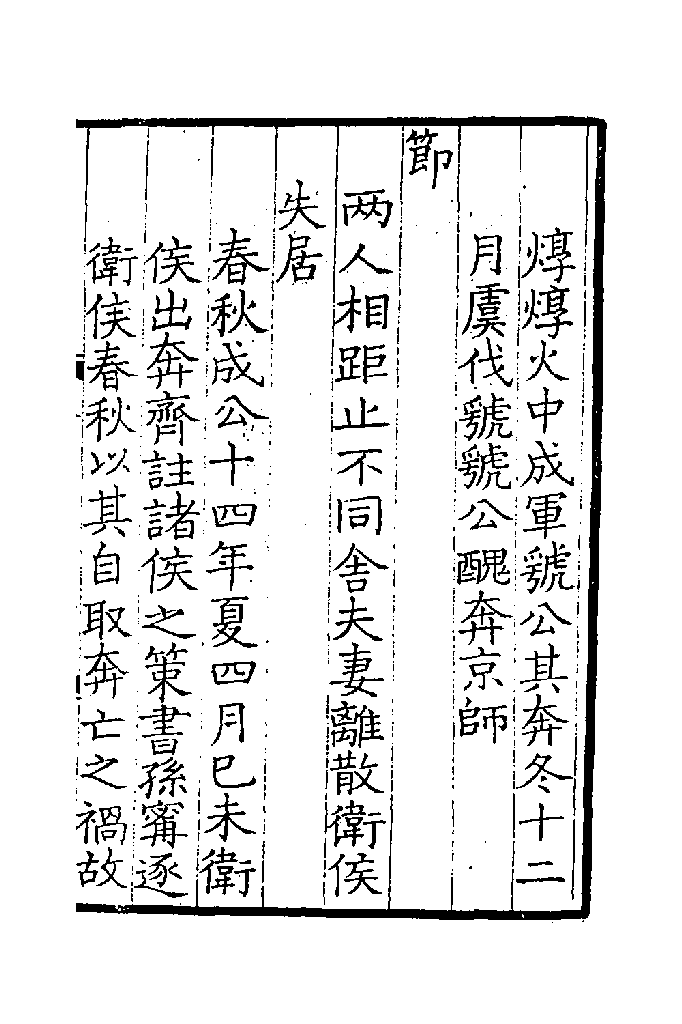 焞焞火中成軍虢公其奔冬十二
月虞伐虢虢公醜奔京師
節
两人相距止不同舍夫妻離散衛侯
失居
春秋成公十四年夏四月巳未衛
侯出奔齊註諸侯之策書孫甯逐
衛侯春秋以其自取奔亡之禍故